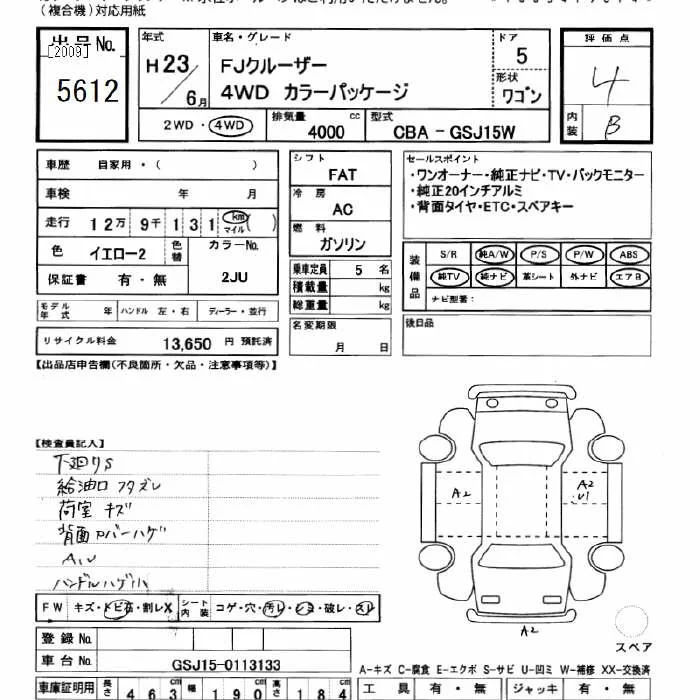 (複合機)対応用紙
出品No.
[2009]
5612
年式
H23/6月
車名・グレード
FJクルーザー
4WD カラーパッケージ
ドア
5
形状
ワゴン
評価点
4
内装
B
2WD・4WD
排気量
4000
cc
型式
CBA-GSJ15W
車歴 自家用・( )
車検 年 月
走行 12万 9千 131 km マイル ( )
色 イエロー2
色替
カラーNo.
2JU
保証書 有・無
モデル年式 年
ハンドル 左・右
ディーラー・並行
リサイクル料金 13,650 円 預託済
シフト
FAT
冷房
AC
燃料
ガソリン
乗車定員 5 名
積載量 kg
総重量 kg
名変期限
月 日
セールスポイント
・ワンオーナー・純正ナビ・TV・バックモニター
・純正20インチアルミ
・背面タイヤ・ETC・スペアキー
装備品
S/R 純A/W P/S P/W ABS
純TV 純ナビ 革シート 外ナビ エアB
ナビ型番：
後日品
【出品店申告欄(不良箇所・欠品・注意事項等)】
【検査員記入】
下廻りS
給油口 フタズレ
荷室 キズ
背面カバーハゲ
A,U
ハンドルハゲ小
A2
A2
U1
A2
スペア
FW キズ・トビ石・割レX
シート内装 コゲ・穴・汚レ・シミ・破レ・スレ
登録No.
車台No. GSJ15-0113133
A-キズ C-腐食 E-エクボ S-サビ U-凹ミ W-補修 XX-交換済
車庫証明用 長さ 463 cm 幅 190 cm 高さ 184 cm
工具 有・無 ジャッキ 有・無